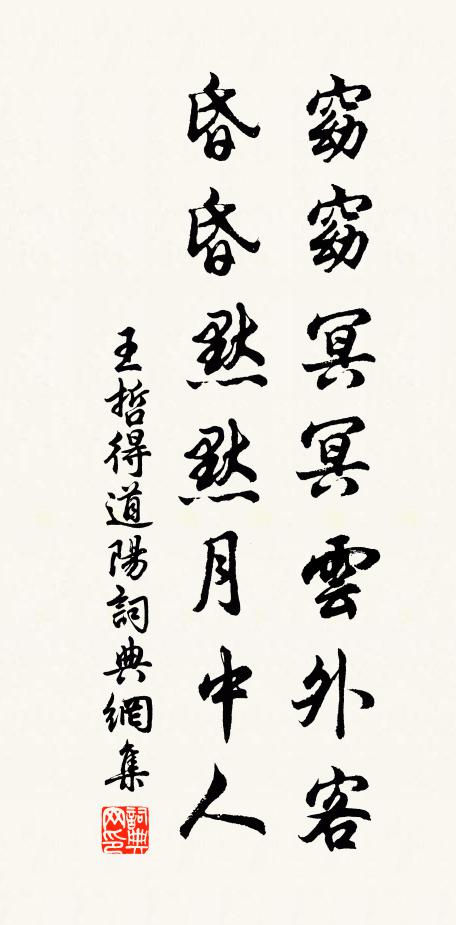 窈窈冥冥雲外客
昏昏默默月中人
王哲得道陽詞典網集
詞典网印